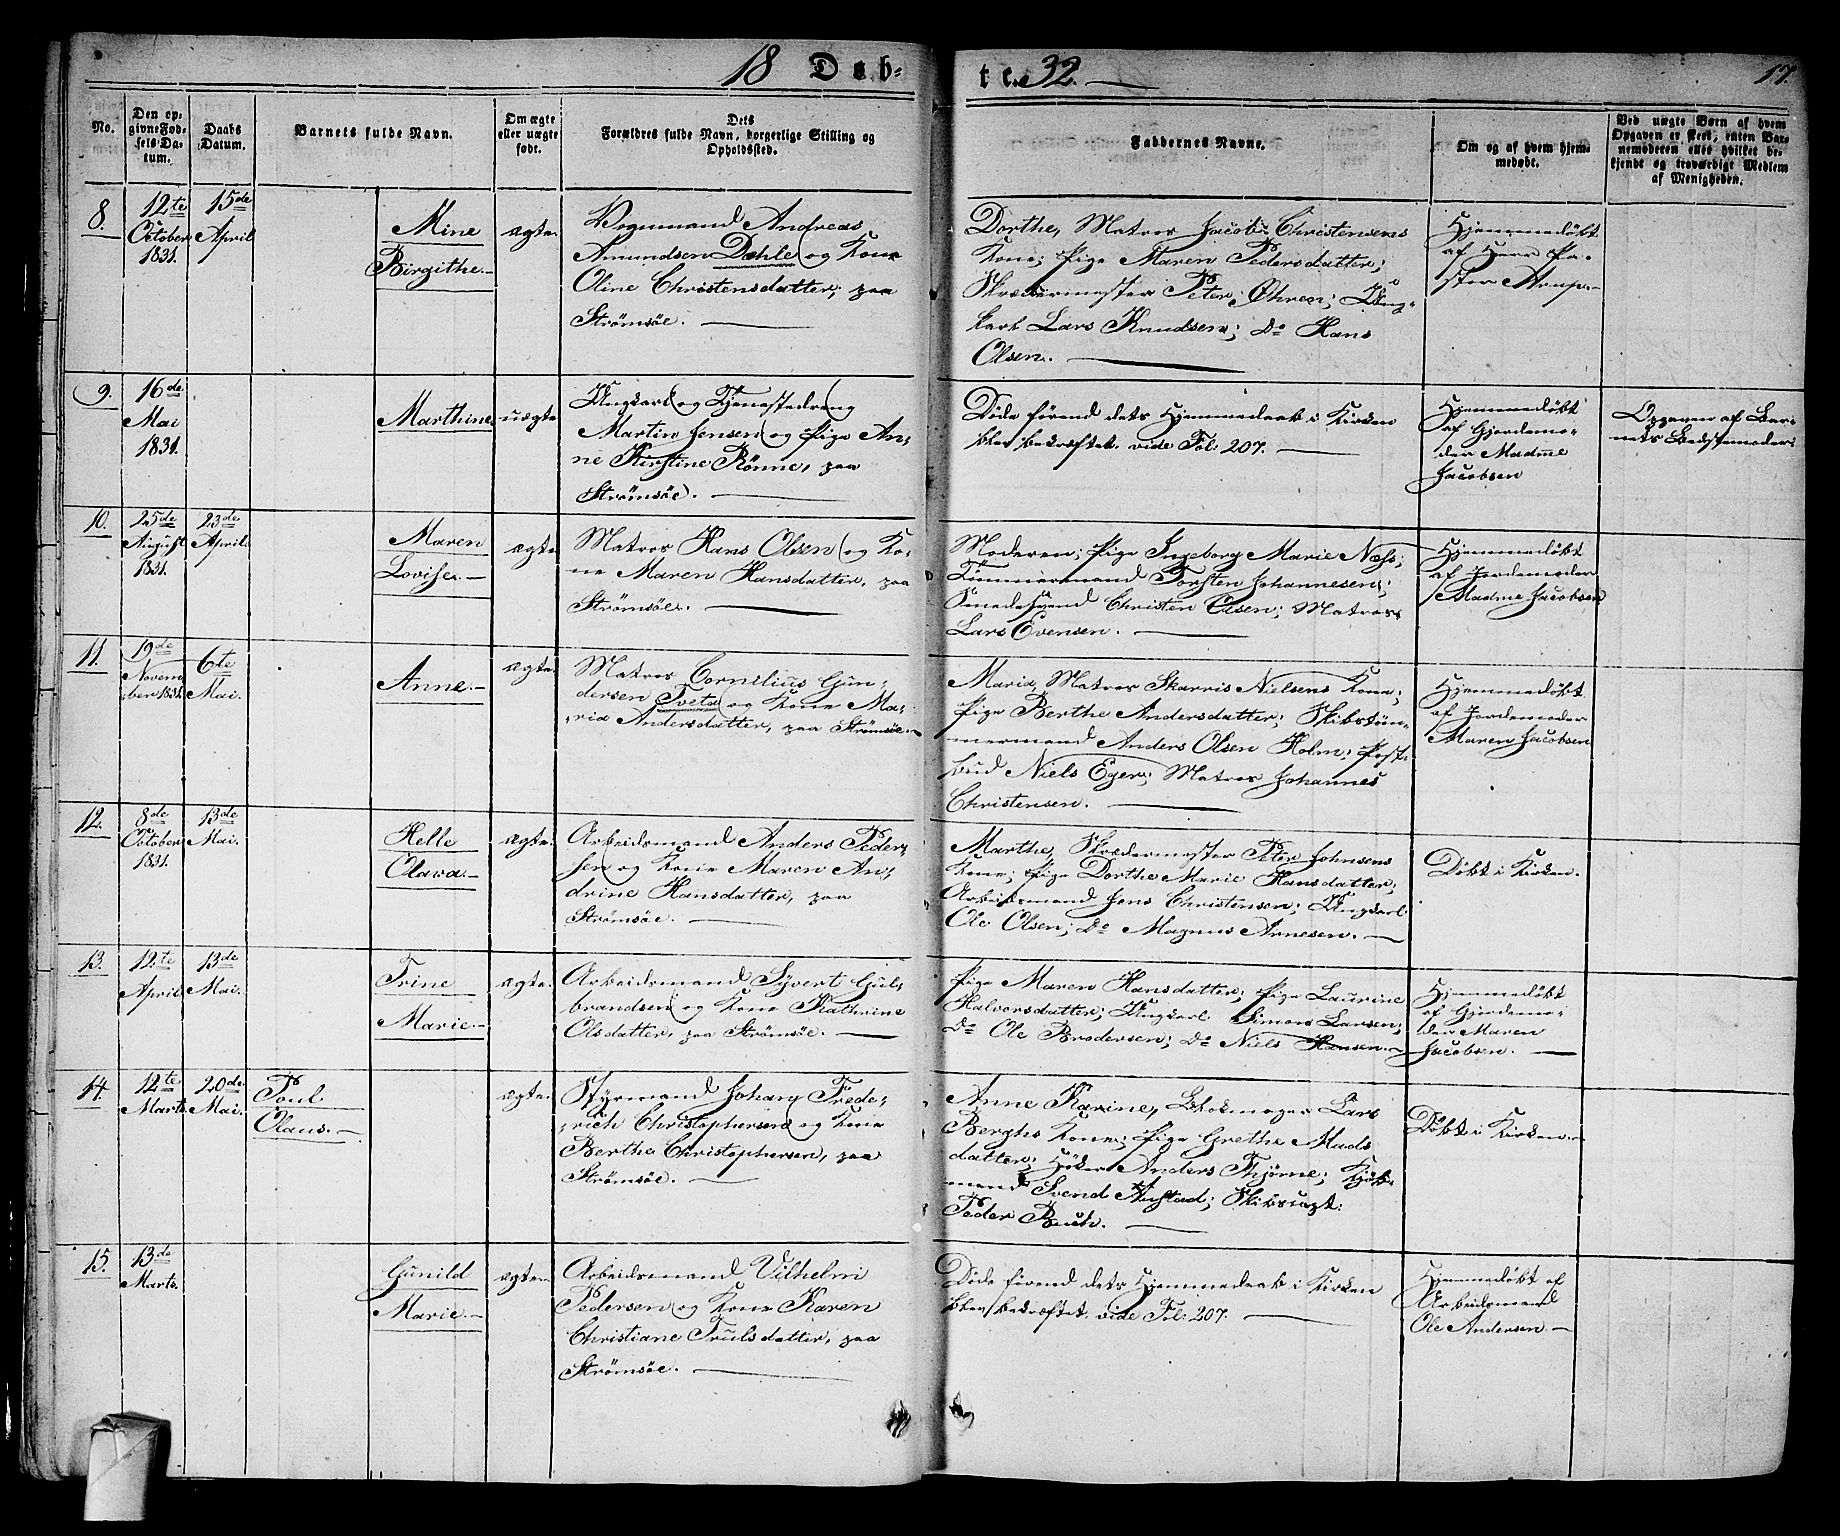 18 Døb-
te 32.
17.
No.
Den op-
givne Fød-
sels Da-
tum.
Daabs
Datum.
Barnets fulde Navn.
Om ægte
eller uægte
født.
Dets
Forældres fulde Navn, borgerlige Stilling og
Opholdssted.
Faddernes Navne.
Om og af hvem hjem-
medøbt.
Ved uægte Børn af hvem
Opgaven er skeet, enten Bar-
nemoderen eller hvilket be-
kjendt og troværdigt Medlem
af Menigheden.
8.
12te
October
1831.
15de
April
Mine
Birgithe.-
ægte.
Vognmand Andreas
Amundsen Dæhle og Kone
Oline Christensdatter, paa
Strømsøe.
Dorthe, Matros Jacob Christensens
Kone; Pige Maren Pedersdatter;
Skrædermester Peter Øhren; Ung-
karl Lars Knudsen; Do Hans
Olsen.
Hjemmedøbt
af Herr Pa-
stor Arup.-
9.
16de
Mai
1831.
Marthine
uægte
Ungkarl og Tjenestedreng
Martin Jensen og Pige An-
ne Kirstine Rønne, paa
Strømsøe.
Døde førend dets Hjemmedaab i Kirken
blev bekræftet. vide Fol: 207.
Hjemmedøbt
af Gjordemo-
der Madme
Jacobsen
Opgaven af Bar-
nets Bedstemoder.
10.
25de
August
1831.
23de
April.
Maren
Lovise.-
ægte.
Matros Hans Olsen og Ko-
ne Maren Hansdatter, paa
Strømsøe.
Moderen; Pige Ingeborg Marie Næss;
Tømmermand Torsten Johannesen;
Smedesvend Christen Olsen; Matros
Lars Evensen.
Hjemmedøbt
af Jordemoder
Madme Jacobsen
11.
19de
Novem-
ber 1831.
6te
Mai.
Anne.-
ægte.
Matros Cornilius Gun-
dersen Tveta og Kone Ma-
ria Andersdatter, paa Strømsøe.
Maria, Matros Skarris Nielsens Kone;
Pige Berthe Andersdatter; Skibstøm-
mermand Anders Olsen Holm; Post-
bud Niels Eger; Matros Johannes
Christensen.
Hjemmedøbt
af Jordemoder
Maren Jacobsen
12.
8de
October
1831.
13de
Mai.
Helle
Olava.-
ægte.
Arbeidsmand Anders Peder-
sen og Kone Maren An-
drine Hansdatter, paa
Strømsøe.
Marthe, Skrædermester Peter Johnsens
Kone; Pige Dorthe Marie Hansdatter;
Arbeidsmand Jens Christensen; Ungkarl
Ole Olsen; Do Magnus Arnesen.
Døbt i Kirken.
13.
12te
April
13de
Mai.
Trine
Marie.-
ægte.
Arbeidsmand Syvert Gul-
brandsen og Kone Kathrine
Olsdatter, paa Strømsøe.
Pige Maren Hansdatter; Pige Laurine
Halvorsdatter; Ungkarl Simon Larsen;
Do Ole Brodersen; Do Niels Hansen.
Hjemmedøbt
af Gjordemo-
der Maren
Jacobsen.
14.
12te
Marts.
20de
Mai.
Poul
Olaus.-
ægte.
Styrmand Johan Frede-
rich Christophersen og Kone
Berthe Christophersen, paa
Strømsøe.
Anne Karine, Lars
Berghs Kone; Pige Grethe Mads
datter; Høker Anders Thjørne; Kjøb-
mand Svend Austad; Skibscapt:
Peder Buch.
Døbt i Kirken.-
15.
13de
Marts.
Gunild
Marie.-
ægte.
Arbeidsmand Vilhelm
Pedersen og Kone Karen
Christiane Trulsdatter, paa
Strømsøe.
Døde førend dets Hjemmedaab i Kirken
blev bekræftet. vide Fol: 207.
Hjemmedøbt af
Arbeidsmand
Ole Andersen